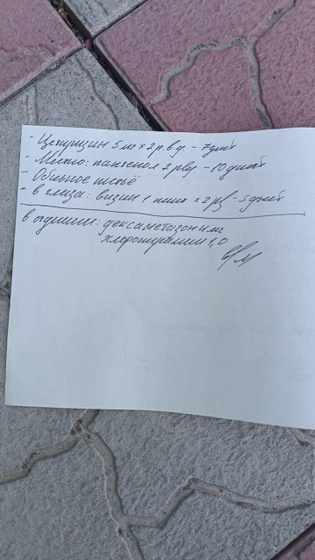 - Цетиризин 5 мг × 2 р. в д. - 7 дней
- Местно: пантенол 2 р/д - 10 дней
- Обильное питьё
- в глаза: визин 1 кап × 2 р/д - 5 дней
в отделении: дексаметазон 4 мг
хлоропирамин 1,0